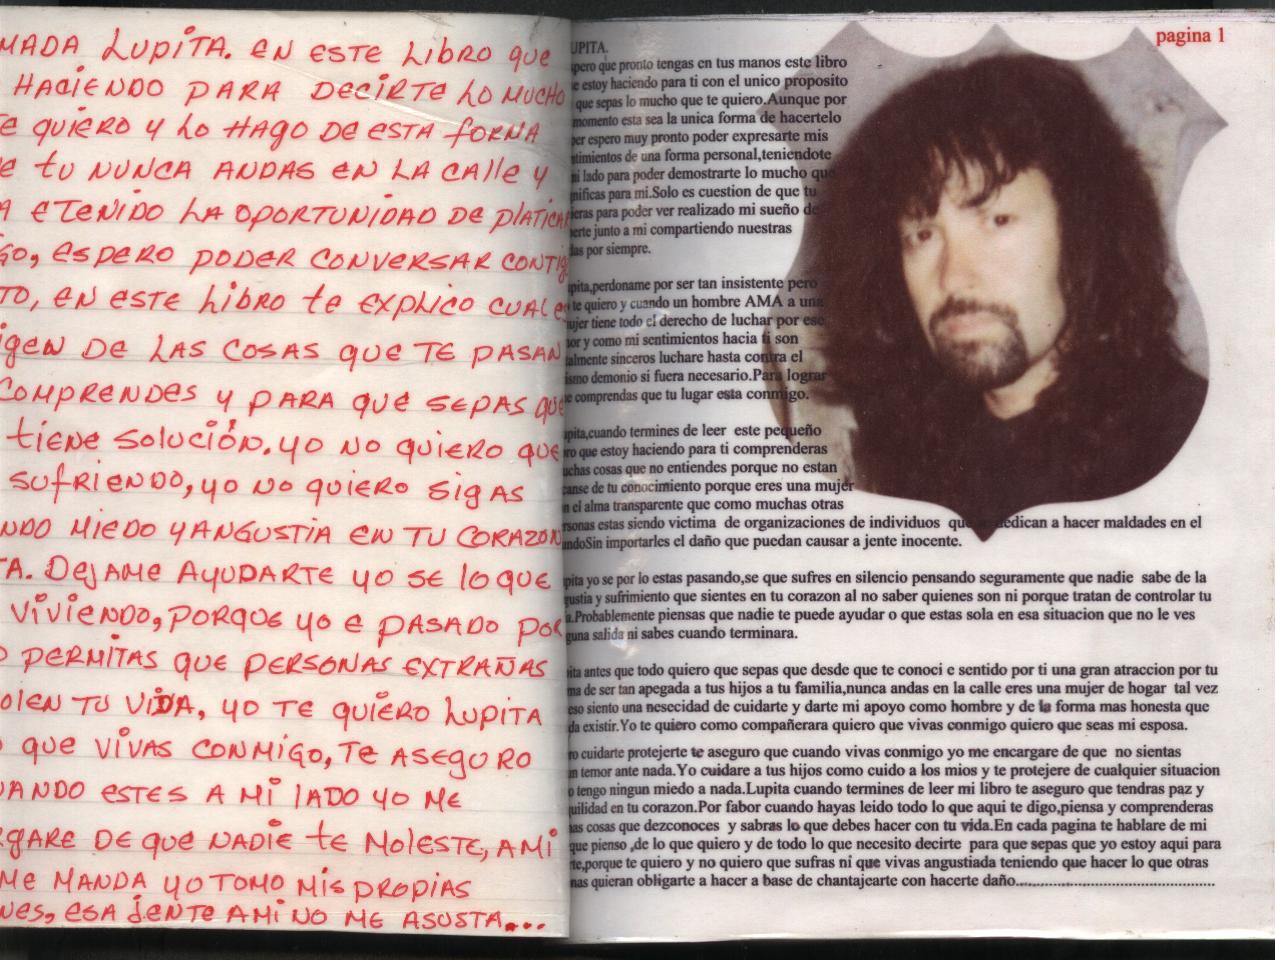 MADA LUPITA. EN ESTE LIBRO QUE
HACIENDO PARA DECIRTE LO MUCHO
TE QUIERO Y LO HAGO DE ESTA FORNA
E TU NUNCA ANDAS EN LA CALLE Y
A ETENIDO LA OPORTUNIDAD DE PLATICAR
GO, ESPERO PODER CONVERSAR CONTIG
TO, EN ESTE LIBRO TE EXPLICO CUAL ES
IGEN DE LAS COSAS QUE TE PASAN
COMPRENDES Y PARA QUE SEPAS QUE
TIENE SOLUCIÓN. YO NO QUIERO QUE
SUFRIENDO, YO NO QUIERO SIGAS
NDO MIEDO Y ANGUSTIA EN TU CORAZON
TA. DEJAME AYUDARTE YO SE LO QUE
VIVIENDO, PORQUE YO E PASADO POR
O PERMITAS QUE PERSONAS EXTRAÑAS
OLEN TU VIDA, YO TE QUIERO LUPITA
O QUE VIVAS CONMIGO, TE ASEGURO
UANDO ESTES A MI LADO YO ME
RGARE DE QUE NADIE TE MOLESTE, AMI
ME MANDA YO TOMO MIS PROPIAS
NES, ESA JENTE AMI NO ME ASUSTA...
pagina 1
UPITA.
pero que pronto tengas en tus manos este libro
e estoy haciendo para ti con el unico proposito
que sepas lo mucho que te quiero.Aunque por
momento esta sea la unica forma de hacertelo
ber espero muy pronto poder expresarte mis
ntimientos de una forma personal,teniendote
mi lado para poder demostrarte lo mucho que
nificas para mi.Solo es cuestion de que tu
ieras para poder ver realizado mi sueño de
erte junto a mi compartiendo nuestras
das por siempre.
upita,perdoname por ser tan insistente pero
te quiero y cuando un hombre AMA a una
ujer tiene todo el derecho de luchar por ese
or y como mi sentimientos hacia ti son
talmente sinceros luchare hasta contra el
ismo demonio si fuera necesario.Para lograr
e comprendas que tu lugar esta conmigo.
upita,cuando termines de leer este pequeño
ro que estoy haciendo para ti comprenderas
uchas cosas que no entiendes porque no estan
canse de tu conocimiento porque eres una mujer
n el alma transparente que como muchas otras
rsonas estas siendo victima de organizaciones de individuos que se dedican a hacer maldades en el
undoSin importarles el daño que puedan causar a jente inocente.
pita yo se por lo estas pasando,se que sufres en silencio pensando seguramente que nadie sabe de la
gustia y sufrimiento que sientes en tu corazon al no saber quienes son ni porque tratan de controlar tu
a.Probablemente piensas que nadie te puede ayudar o que estas sola en esa situacion que no le ves
guna salida ni sabes cuando terminara.
pita antes que todo quiero que sepas que desde que te conoci e sentido por ti una gran atraccion por tu
ma de ser tan apegada a tus hijos a tu familia,nunca andas en la calle eres una mujer de hogar tal vez
eso siento una nesecidad de cuidarte y darte mi apoyo como hombre y de la forma mas honesta que
da existir.Yo te quiero como compañerara quiero que vivas conmigo quiero que seas mi esposa.
ro cuidarte protejerte te aseguro que cuando vivas conmigo yo me encargare de que no sientas
n temor ante nada.Yo cuidare a tus hijos como cuido a los mios y te protejere de cualquier situacion
o tengo ningun miedo a nada.Lupita cuando termines de leer mi libro te aseguro que tendras paz y
quilidad en tu corazon.Por fabor cuando hayas leido todo lo que aqui te digo,piensa y comprenderas
has cosas que dezconoces y sabras lo que debes hacer con tu vida.En cada pagina te hablare de mi
que pienso ,de lo que quiero y de todo lo que necesito decirte para que sepas que yo estoy aqui para
rte,porque te quiero y no quiero que sufras ni que vivas angustiada teniendo que hacer lo que otras
nas quieran obligarte a hacer a base de chantajearte con hacerte daño..............................................